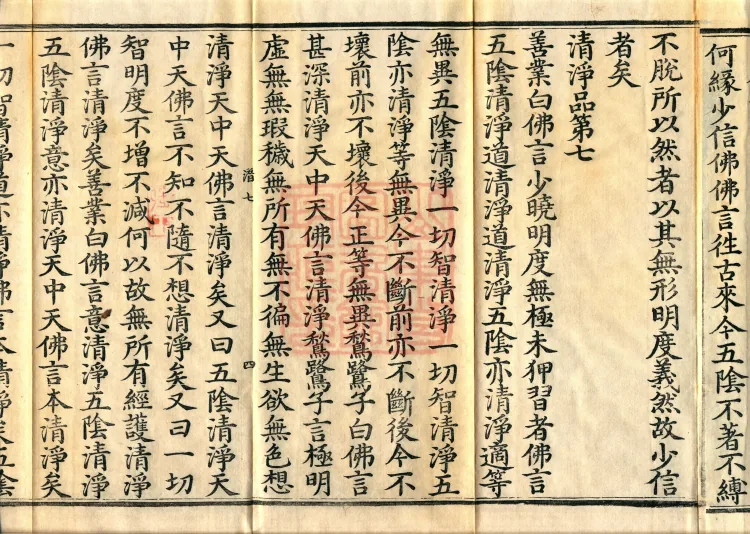 何緣少信佛佛言徃古來今五陰不著不縛
不脫所以然者以其無形明度義然故少信
者矣
清淨品第七
善業白佛言少曉明度無極未狎習者佛言
五陰清淨道清淨道清淨五陰亦清淨適等
無異五陰清淨一切智清淨一切智清淨五
陰亦清淨等無異今不斷前亦不斷後今不
壞前亦不壞後今正等無異鶖鷺子白佛言
甚深清淨天中天佛言清淨鶖鷺子言極明
虛無無瑕穢無所有無不徧無生欲無色想
潛七 四
清淨天中天佛言清淨矣又曰五陰清淨天
中天佛言不知不隨不想清淨矣又曰一切
智明度不增不減何以故無所有經護清淨
佛言清淨矣善業白佛言意清淨五陰清淨
五陰清淨意亦清淨天中天佛言本清淨矣
一切智清淨道亦清淨佛言本清淨矣五陰